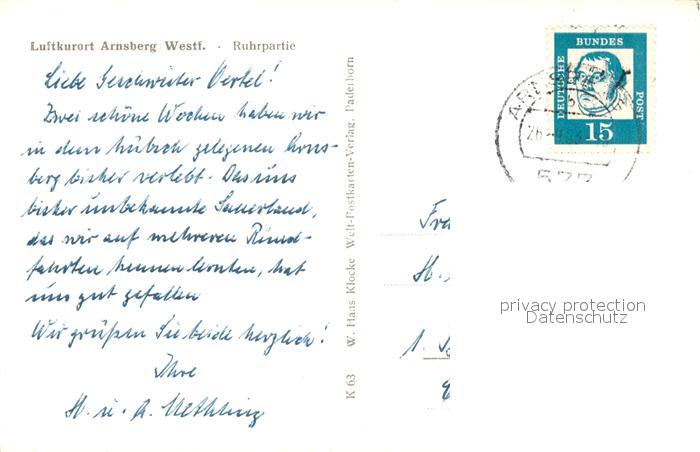 Luftkurort Arnsberg Westf. · Ruhrpartie
Liebe Geschwister Oertel!
Zwei schöne Wochen haben wir
in dem hübsch gelegenen Arns-
berg bisher verlebt. Das uns
bisher unbekannte Sauerland,
das wir auf mehreren Rund-
fahrten kennen lernten, hat
uns gut gefallen
Wir grüßen Sie beide herzlich!
Ihre
H. u. A.
K 63 W. Haus Klocke Welt-Postkarten-Verlag, Paderborn
DEUTSCHE BUNDES POST
15
577
H.
privacy protection
Datenschutz